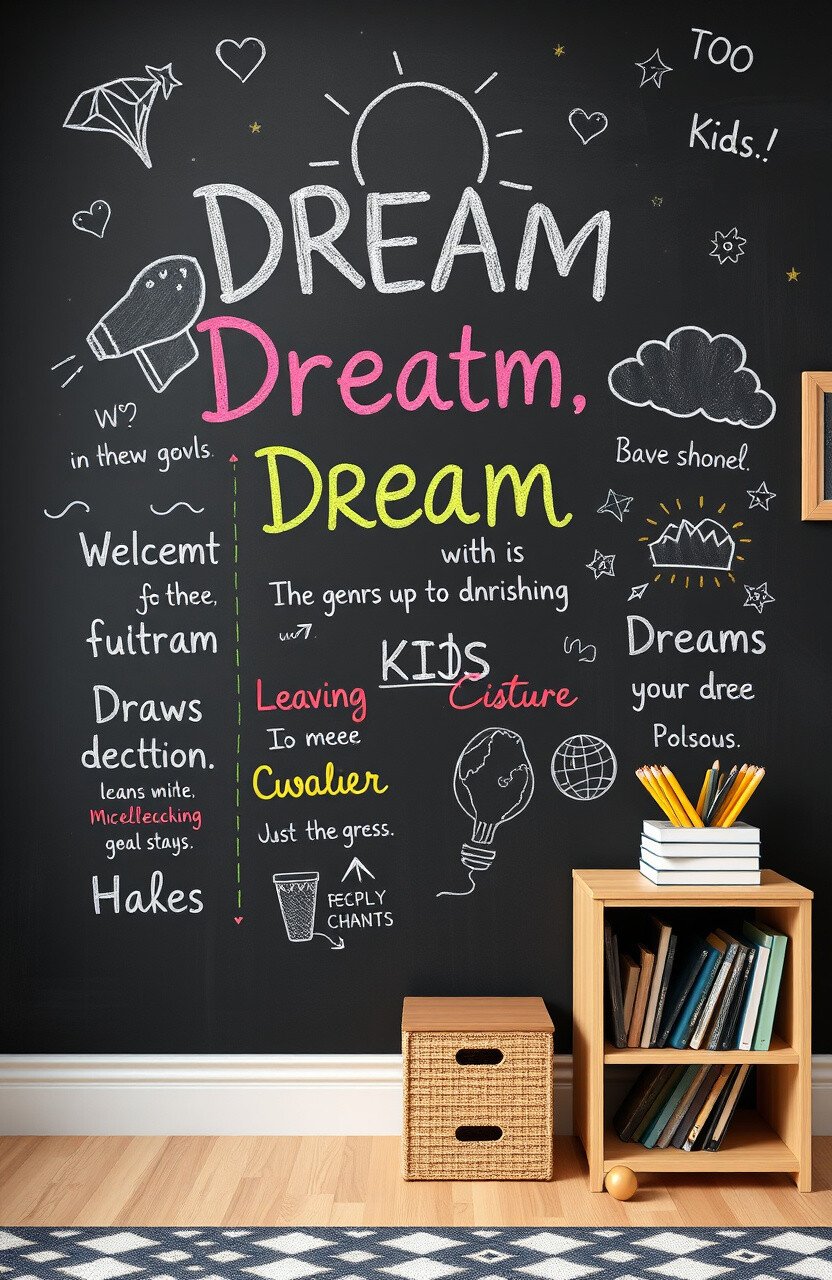 TOO
Kids.!
DREAM
Dreatm,
Dream
with is
The genrs up to dnrishing
KIDS
Leaving Cisture
Io meee
Cwalier
Just the gress.
FECPLY
CHANTS
in thew govls.
Welcemt
fo thee,
fuitram
Draws
decttion.
leans mite,
Micellecching
geal stays.
Hakes
Bave shonel.
Dreams
your dree
Polsous.